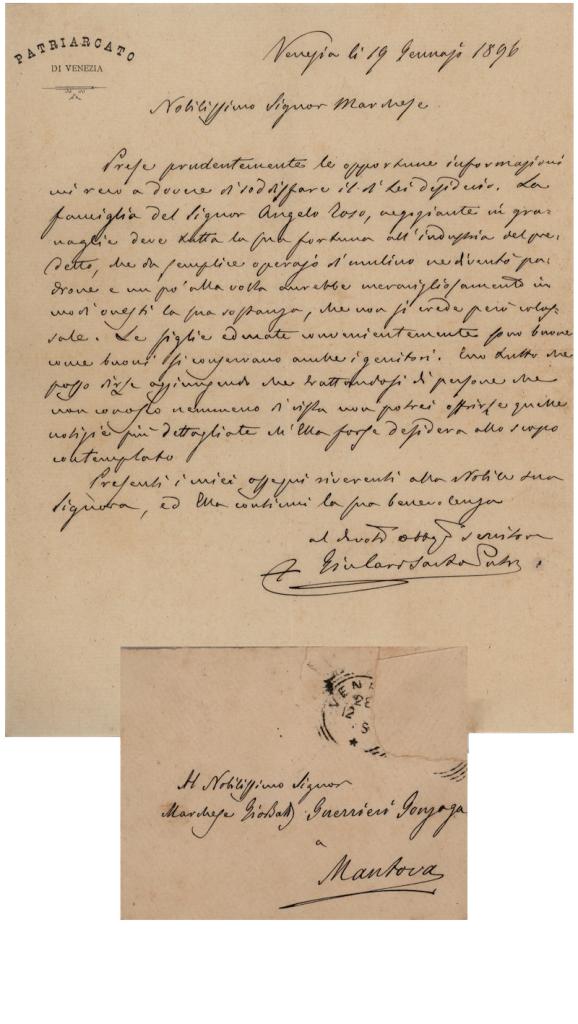 PATRIARCATO
DI VENEZIA
Venezia li 19 Gennajo 1896
Nobilissimo Signor Marchese
Prese prudentemente le opportune informazioni
mi reco a dovere di soddisfare il di Lei desiderio. La
famiglia del Signor Angelo Toso, negoziante in gra-
naglie deve tutta la sua fortuna all'industria del pre-
detto, che da semplice operajo di mulino ne diventò pa-
drone e un po' alla volta aurebbe meravigliosamente in
modi onesti la sua sostanza, che non si crede però colos-
sale. Le figlie educate convenientemente sono buone
come buoni si conservano anche i genitori. Ecco tutto che
posso dirle aggiungendo che trattandosi di persone che
non conosco nemmeno di vista non potrei offrirle quelle
notizie più dettagliate ch'Ella forse desidera allo scopo
contemplato
Presenti i miei ossequi riverenti alla Nobile sua
Signora, ed Ella continui la sua benevolenza
al devoto obbgo servitore
+ Giu Card Sarto Patr
VENE
28
12
S
Al Nobilissimo Signor
Marchese GioBatt Guerrieri Gonzaga
a
Mantova